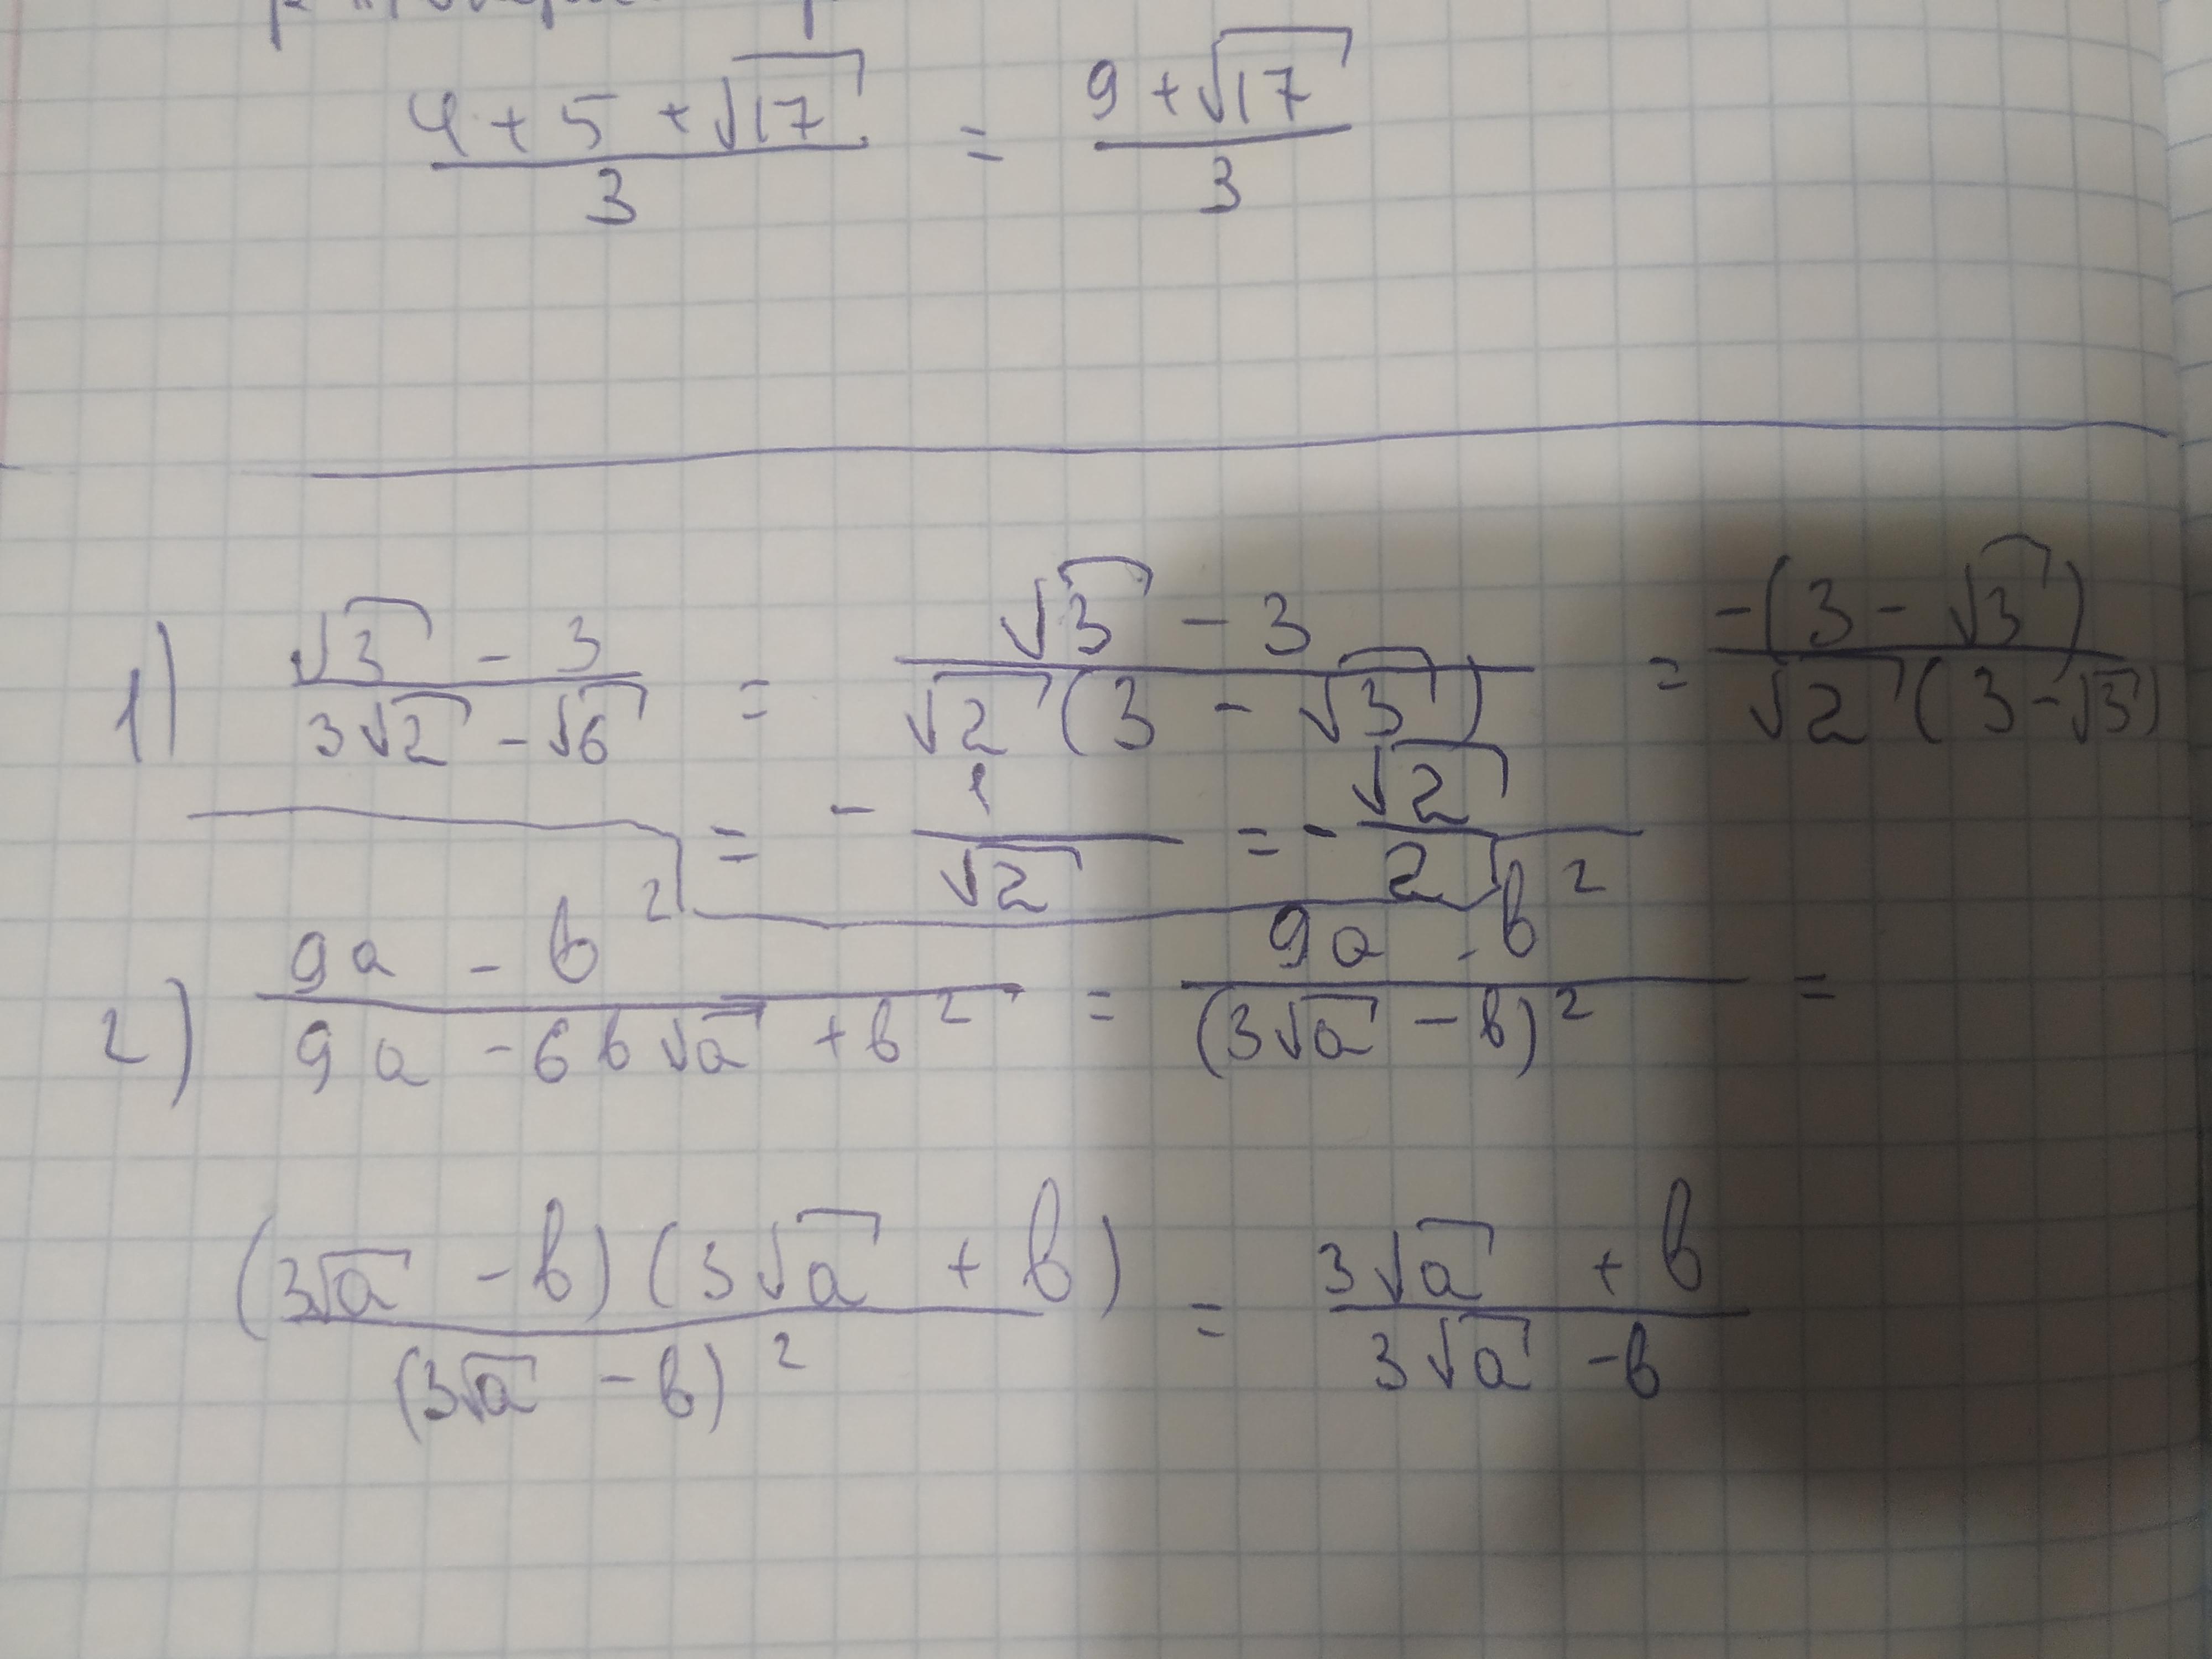 (4 + 5 + √17) / 3 = (9 + √17) / 3
1) (√3 - 3) / (3√2 - √6) = (√3 - 3) / (√2(3 - √3)) = -(3 - √3) / (√2(3 - √3))
= - 1 / √2 = - √2 / 2
2) (9a - b²) / (9a - 6b√a + b²) = (9a - b²) / (3√a - b)² =
(3√a - b)(3√a + b) / (3√a - b)² = (3√a + b) / (3√a - b)